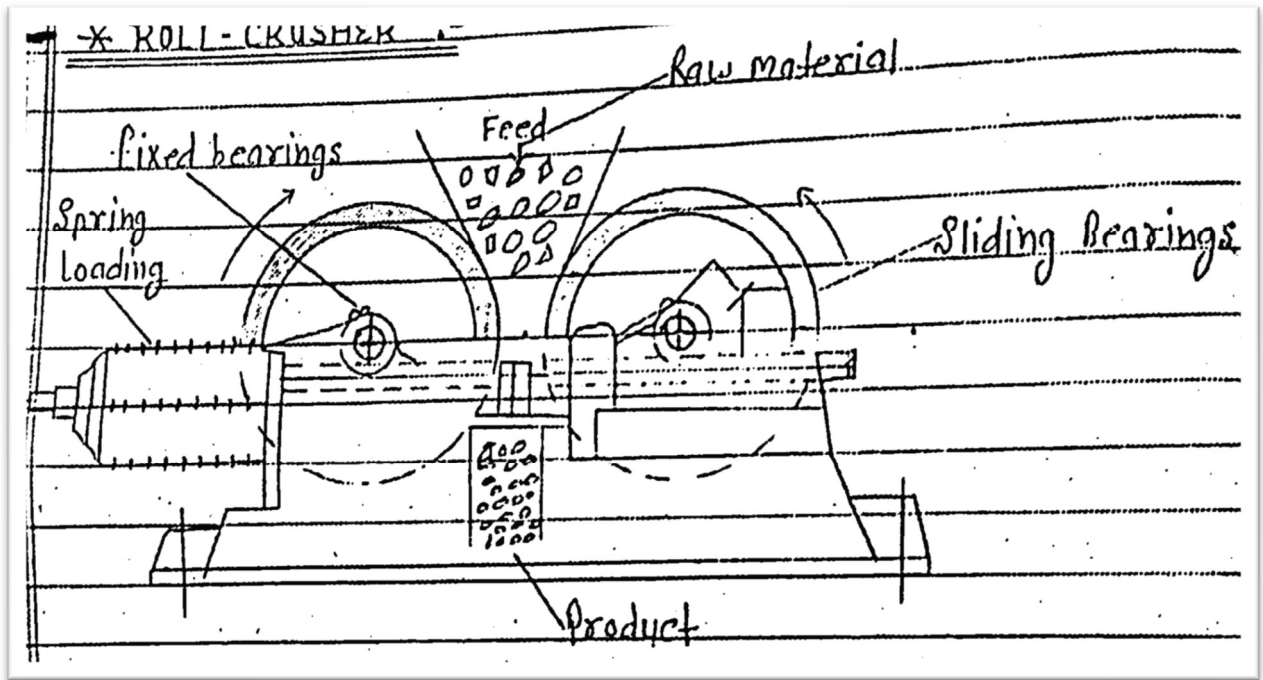 * ROLL-CRUSHER
Raw material
Feed
fixed bearings
Spring
loading
Sliding Bearings
Product